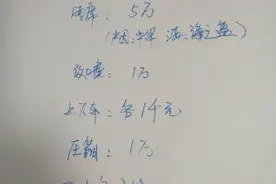 酒席：5万
（烟：中华 酒：海之蓝）
放哨：1万
上下车：各1千元
压箱：1万